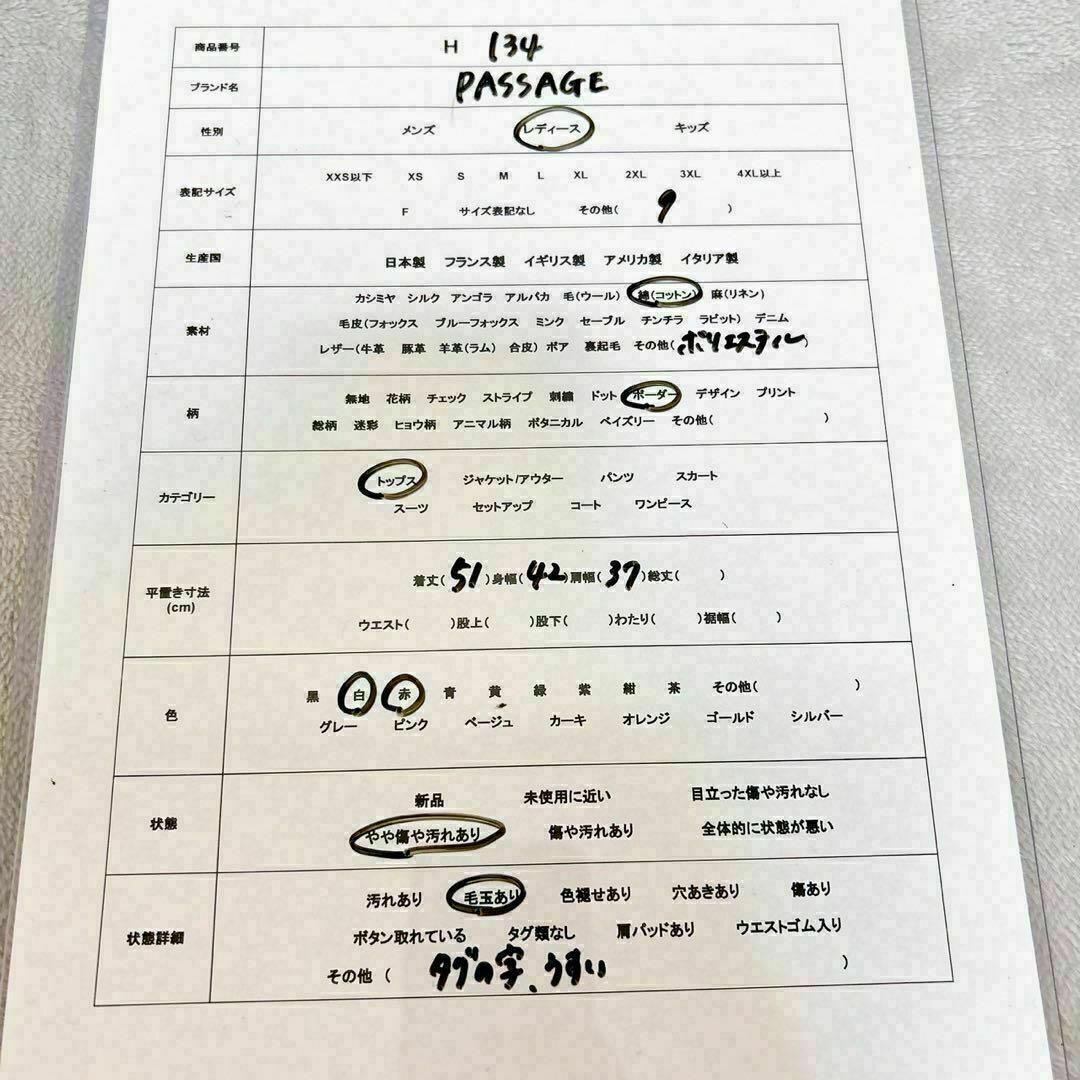 商品番号 H 134
ブランド名 PASSAGE
性別 メンズ レディース キッズ
表記サイズ XXS以下 XS S M L XL 2XL 3XL 4XL以上
F サイズ表記なし その他( 9 )
生産国 日本製 フランス製 イギリス製 アメリカ製 イタリア製
カシミヤ シルク アンゴラ アルパカ 毛(ウール) 綿(コットン) 麻(リネン)
素材 毛皮(フォックス ブルーフォックス ミンク セーブル チンチラ ラビット) デニム
レザー(牛革 豚革 羊革(ラム) 合皮) ボア 裏起毛 その他(ポリエステル)
柄 無地 花柄 チェック ストライプ 刺繍 ドット ボーダー デザイン プリント
総柄 迷彩 ヒョウ柄 アニマル柄 ボタニカル ペイズリー その他( )
カテゴリー トップス ジャケット/アウター パンツ スカート
スーツ セットアップ コート ワンピース
平置き寸法 着丈(51)身幅(42)肩幅(37)総丈( )
(cm) ウエスト( )股上( )股下( )わたり( )裾幅( )
色 黒 白 赤 青 黄 緑 紫 紺 茶 その他( )
グレー ピンク ベージュ カーキ オレンジ ゴールド シルバー
状態 新品 未使用に近い 目立った傷や汚れなし
やや傷や汚れあり 傷や汚れあり 全体的に状態が悪い
汚れあり 毛玉あり 色褪せあり 穴あきあり 傷あり
状態詳細 ボタン取れている タグ類なし 肩パッドあり ウエストゴム入り
その他 ( タグの字、うすい )